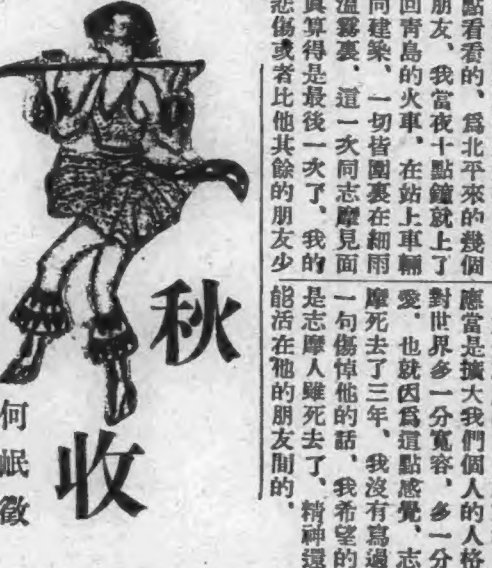 點看看的、爲北平來的幾個
朋友、我當夜十點鐘就上了
回靑島的火車、在站上車輛
同建築、一切皆圍裹在細雨
溫霧裏、這一次同志摩見面
眞算得是最後一次了、我的
悲傷或者比他其餘的朋友少
應當是擴大我們個人的人格
對世界多一分寬容、多一分
愛、也就因爲這點感覺、志
摩死去了三年、我沒有寫過
一句傷悼他的話、我希望的
是志摩人雖死去了、精神還
能活在他的朋友間的、
秋收
何岷徵